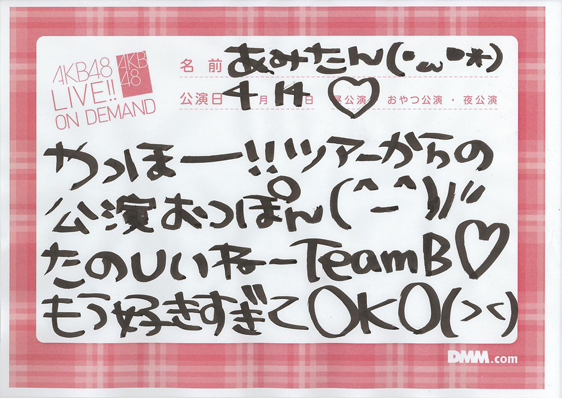 AKB48
LIVE!!
ON DEMAND
AKB
48
名前 あみたん(•ω•*)
公演日 4月14日 昼公演・おやつ公演・夜公演
やっほー!!ツアーからの
公演おっぱん(^_^)//"
たのしいねーTeamB♡
もう好きすぎてOKO(><)
DMM.com